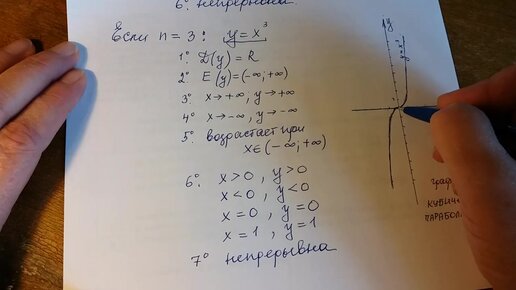 6° непрерывна.
Если n = 3: y = x³
1° D(y) = R
2° E(y) = (-∞; +∞)
3° x → +∞, y → +∞
4° x → -∞, y → -∞
5° возрастает при
x ∈ (-∞; +∞)
6° x > 0, y > 0
x < 0, y < 0
x = 0, y = 0
x = 1, y = 1
7° непрерывна
y
y = x³